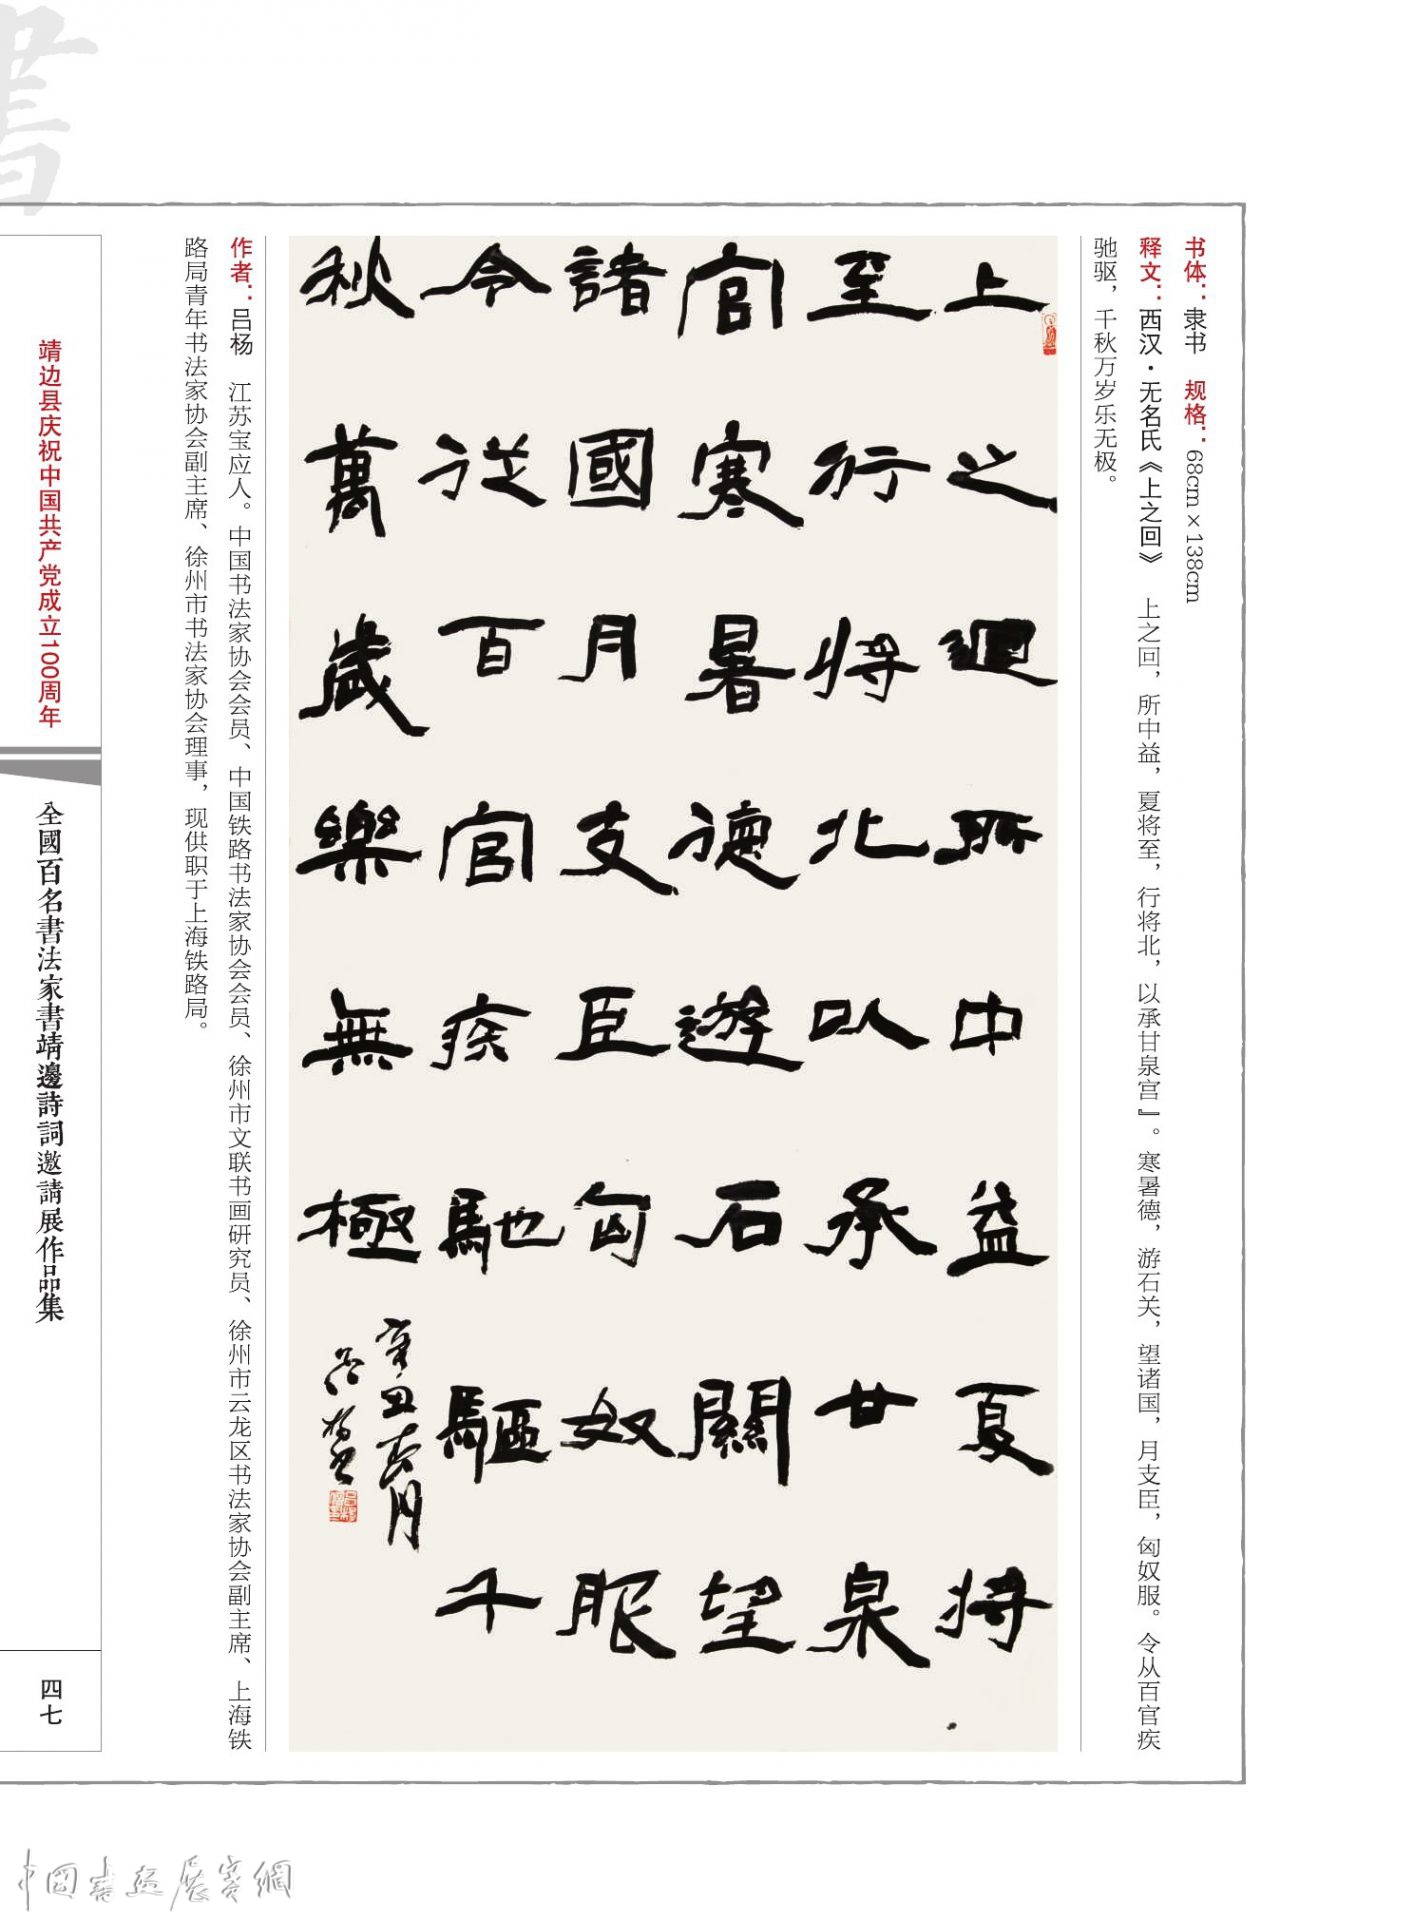 书体：隶书　规格：68cm×138cm
释文：西汉·无名氏《上之回》　上之回，所中益，夏将至，行将北，以承甘泉宫』。寒暑德，游石关，望诸国，月支臣，匈奴服。令从百官疾
驰驱，千秋万岁乐无极。
上之迴所中益夏将
至行将北以承甘泉
官寒暑德遊石關望
諸國月支臣匈奴服
令従百官疾馳驅千
秋萬歲樂無極
辛丑
吕杨
作者：吕杨　江苏宝应人。中国书法家协会会员、中国铁路书法家协会会员、徐州市文联书画研究员、徐州市云龙区书法家协会副主席、上海铁
路局青年书法家协会副主席、徐州市书法家协会理事，现供职于上海铁路局。
靖边县庆祝中国共产党成立100周年
全國百名書法家書靖邊詩詞邀請展作品集
四七
書
中國書畫展賽網